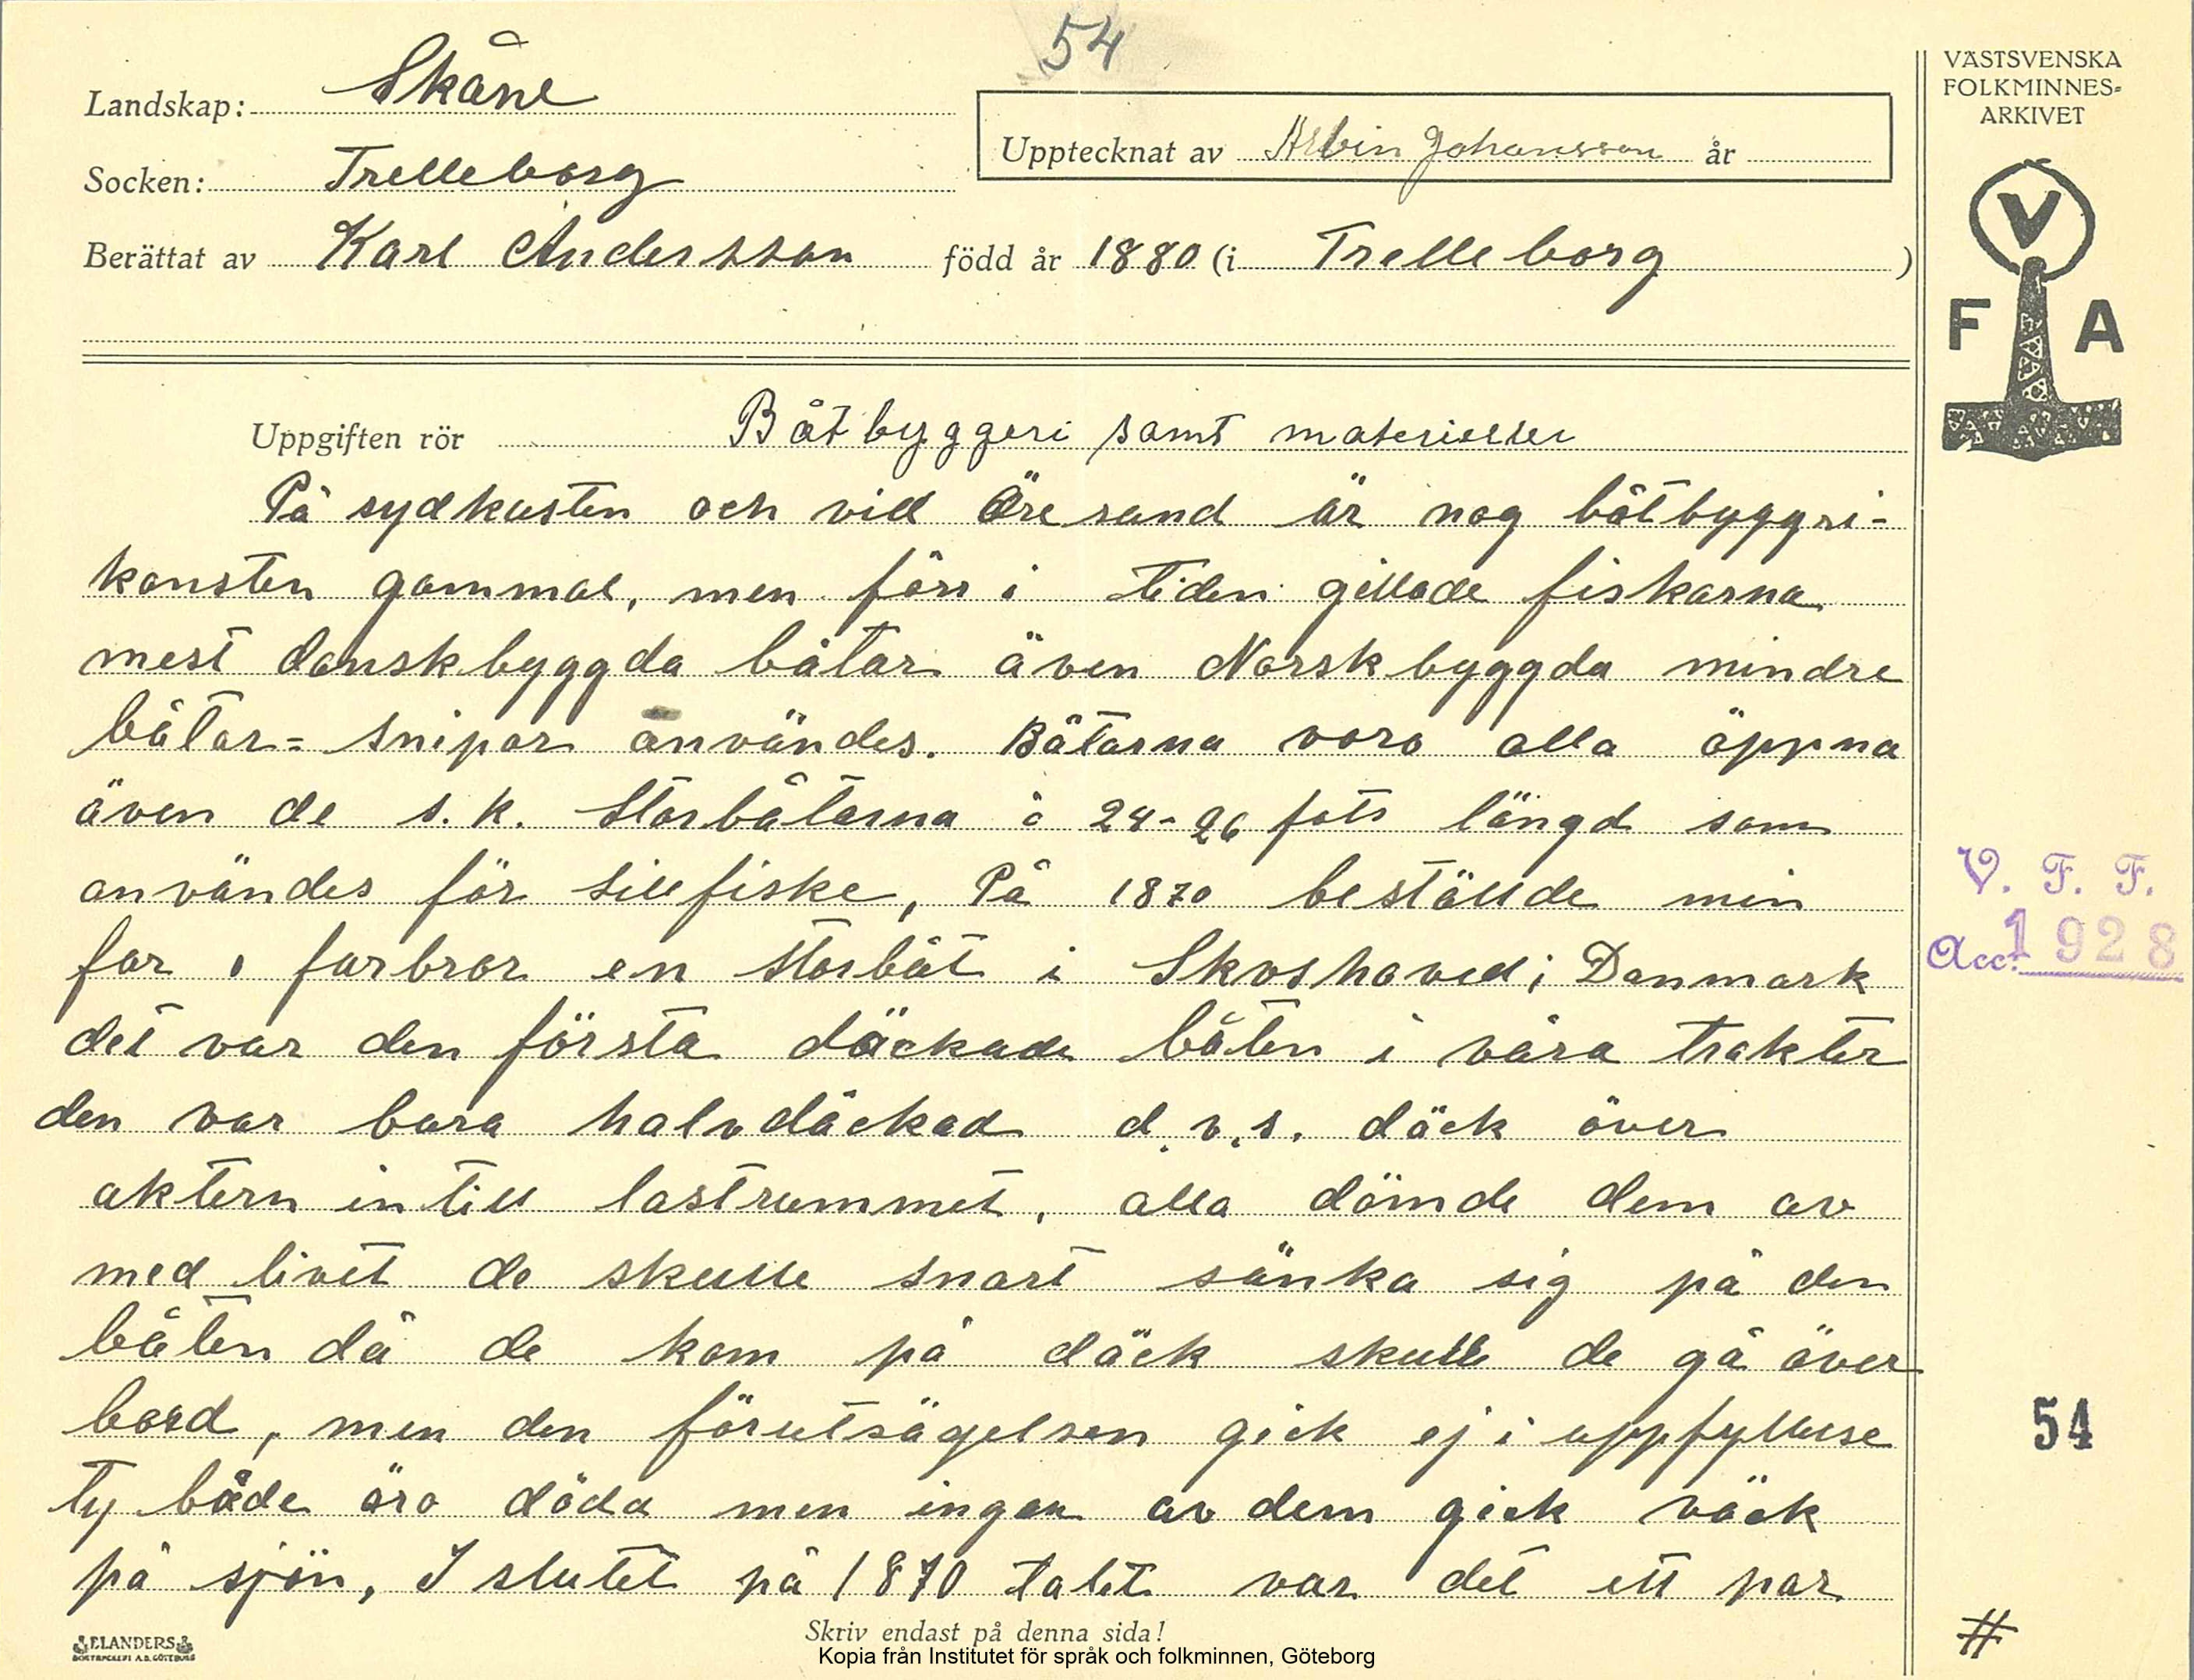 54
Landskap: Skåne
Socken: Trelleborg
Upptecknat av Albin Johansson år
Berättat av Karl Andersson född år 1880 (i Trelleborg )
VÄSTSVENSKA
FOLKMINNES-
ARKIVET
V
F A
Uppgiften rör Båtbyggeri samt materialier
På sydkusten och vid Öresund är nog båtbyggri-
konsten gammal, men förr i tiden gillade fiskarna
mest danskbyggda båtar även Norskbyggda mindre
båtar = snipor användes. Båtarna voro alla öppna
även de s.k. Storbåtarna å 24-26 fots längd som
användes för sillfiske, På 1870 beställde min
far o farbror en storbåt i Skovshoved i Danmark
det var den första däckade båten i våra trakter
den var bara halvdäckad d.v.s. däck över
aktern intill lastrummet, alla dömde dem av
med livet de skulle snart sänka sig på den
båten då de kom på däck skulle de gå över
bord, men den förutsägelsen gick ej i uppfyllelse
ty både äro döda men ingen av dem gick väck
på sjön, I slutet på 1870 talet var det ett par
V. F. F.
Acc. 1928
54
#
Skriv endast på denna sida!
ELANDERS
BOKTRYCKERI A.B. GÖTEBORG
Kopia från Institutet för språk och folkminnen, Göteborg